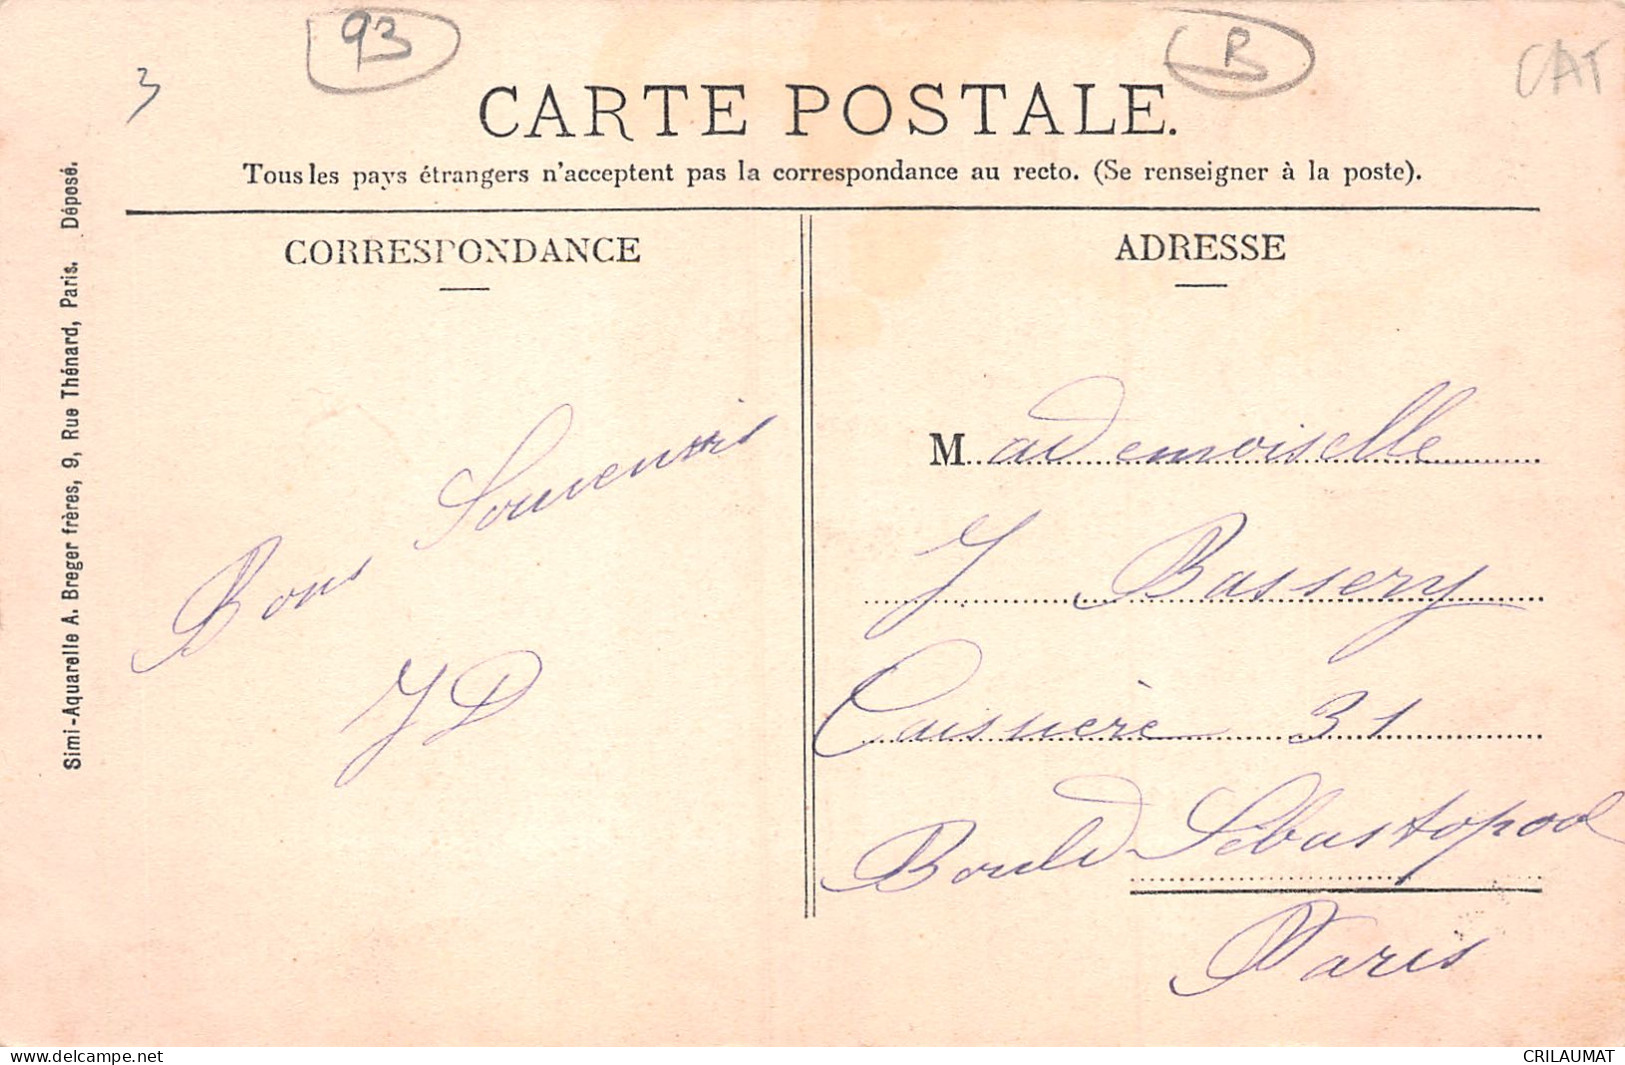 93
R
CAT
3
CARTE POSTALE.
Tous les pays étrangers n'acceptent pas la correspondance au recto. (Se renseigner à la poste).
CORRESPONDANCE
ADRESSE
Simi-Aquarelle A. Breger frères, 9, Rue Thénard, Paris. Déposé.
Bons Souvenirs
J D
Mademoiselle
J Bassery
Caissière 31
Bould Sébastopool
Paris
delcampe.net
CRILAUMAT